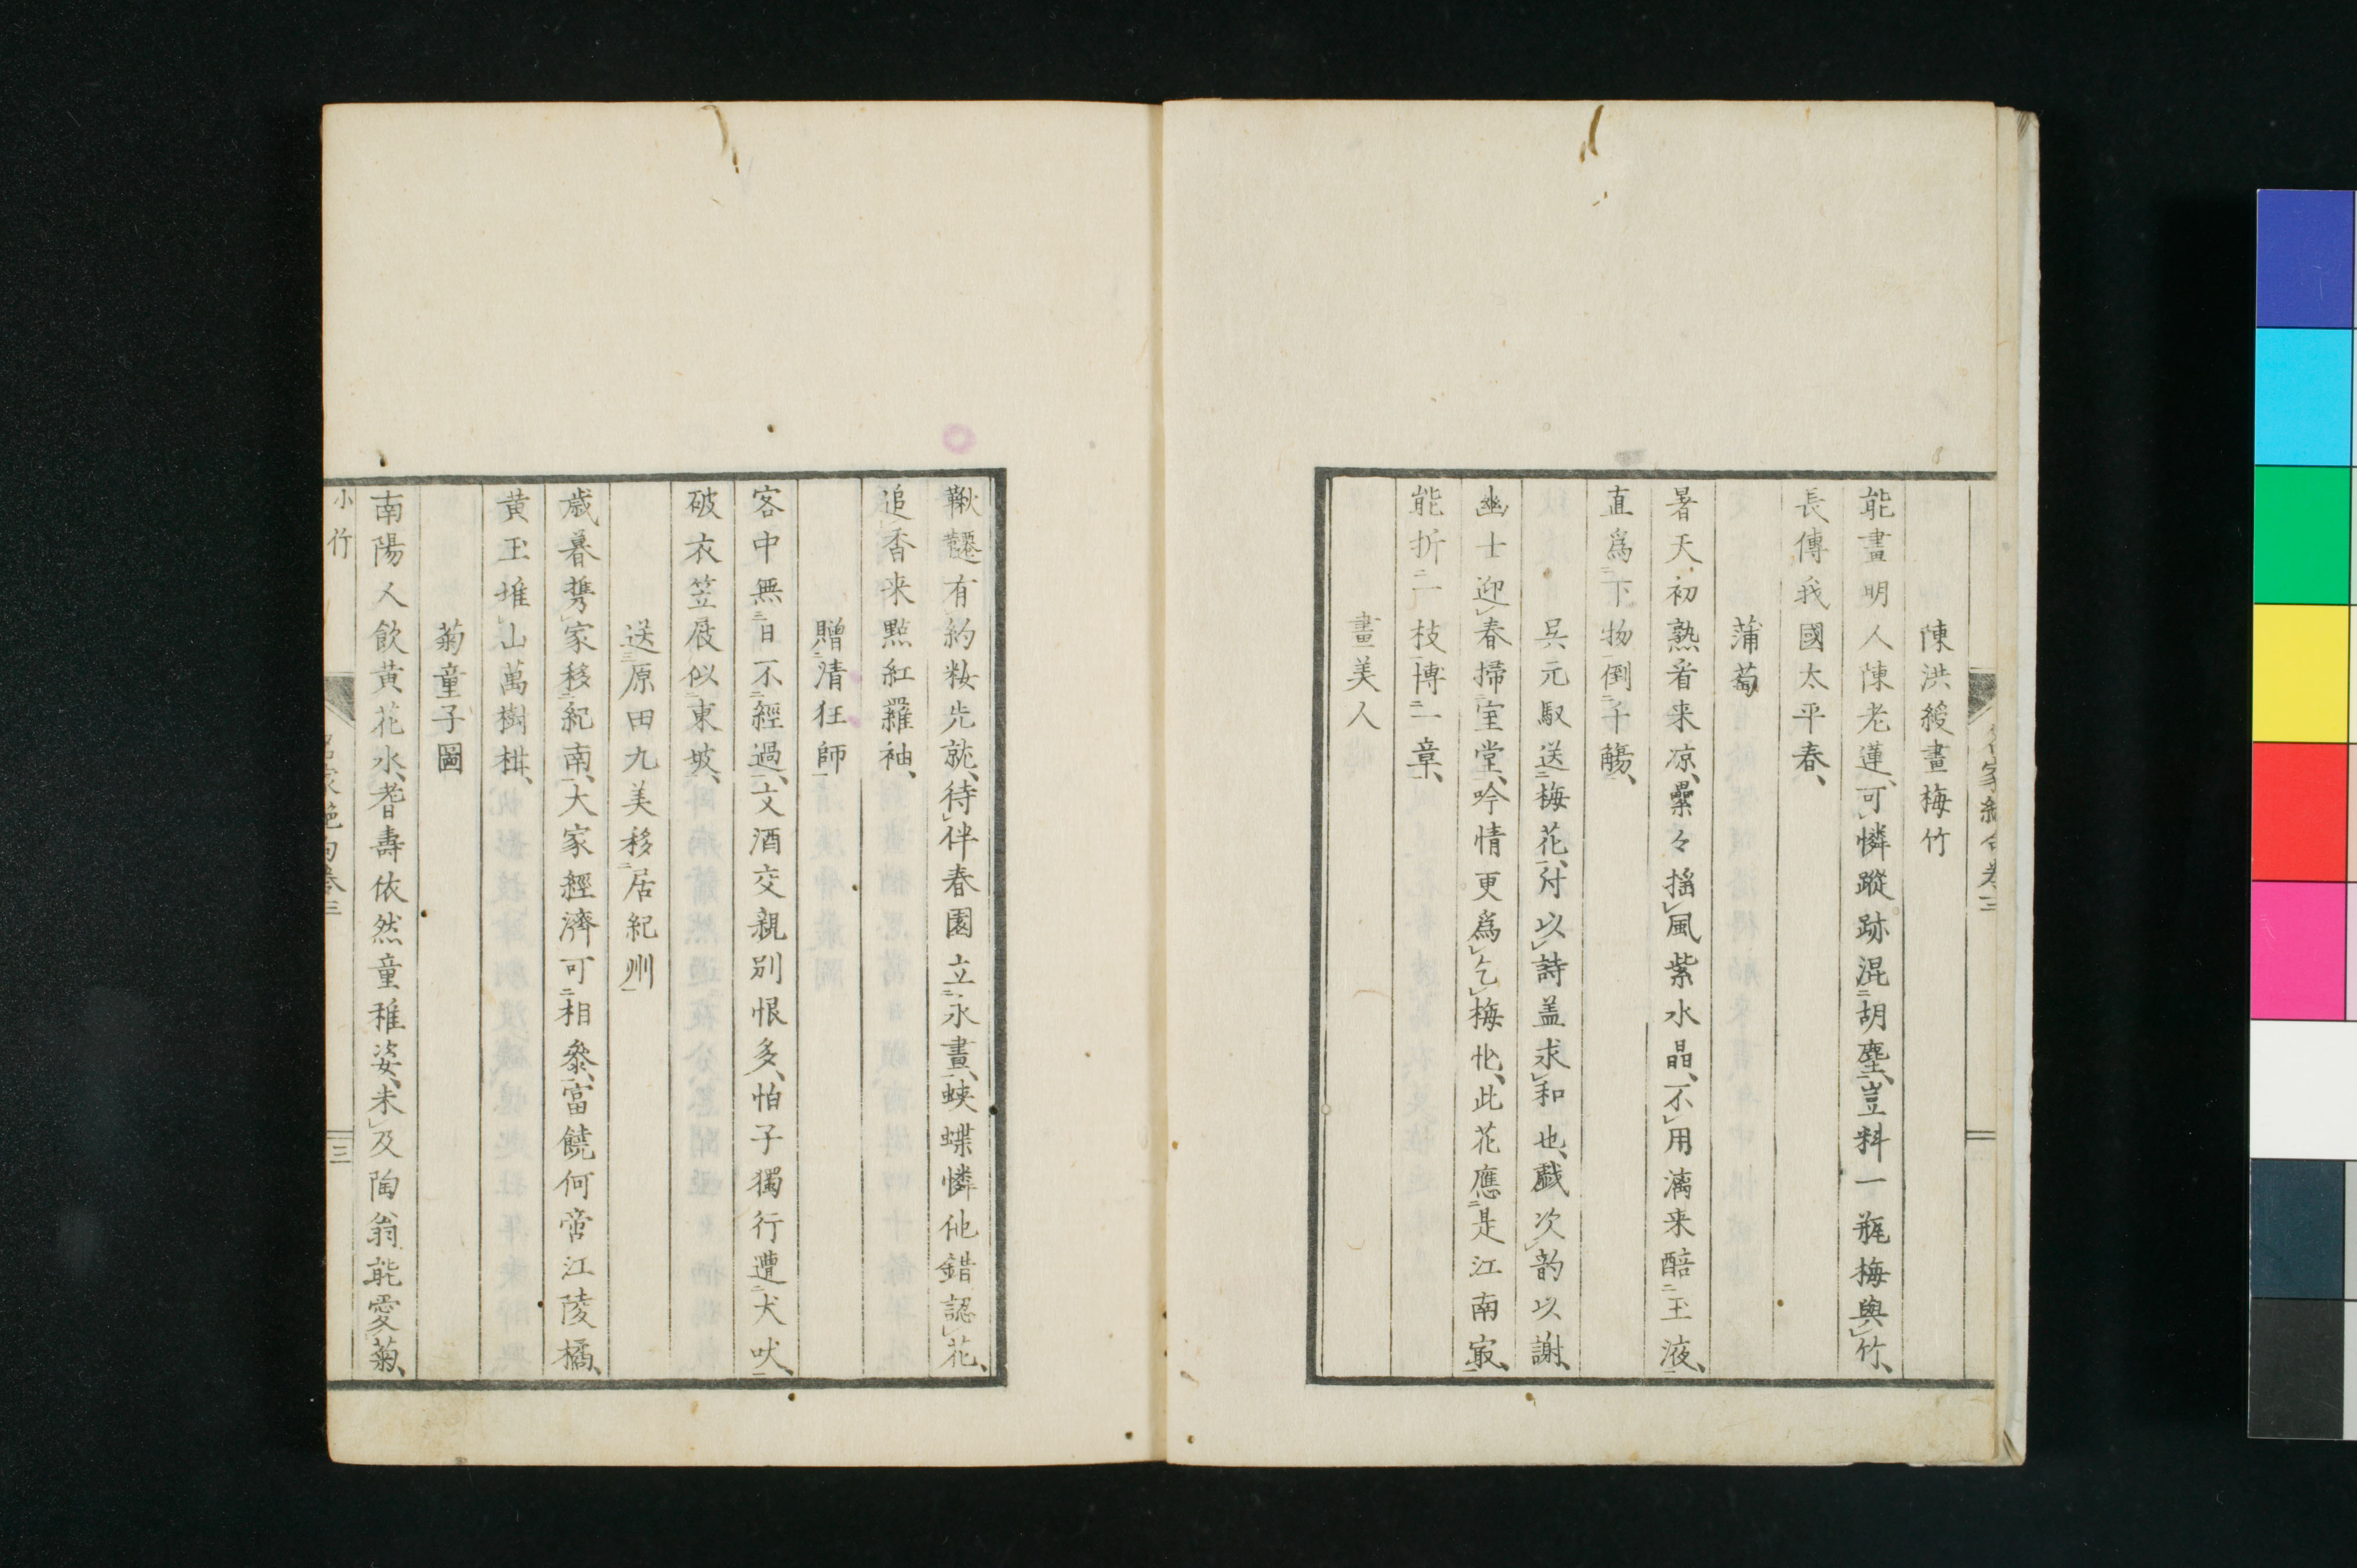 陳洪綬畫梅竹
能畫明人陳老蓮、可憐蹤跡混胡塵、豈料一瓶梅與竹、
長傳我國太平春、
蒲萄
暑天初熟看来凉、纍々揺風紫水晶、不用漓来醅玉液、
直爲下物倒千觴、
呉元馭送梅花、付以詩盖求和也、戯次韵以謝、
幽士迎春掃室堂、吟情更爲乞梅忙、此花應是江南寂、
能折一枝博一章、
畫美人
鞦韆有約粧先就、待伴春園立永晝、蛺蝶憐他錯認花、
追香来點紅羅袖、
贈清狂師
客中無日不經過、文酒交親別恨多、怕子獨行遭犬吠、
破衣笠屐似東坡、
送原田九美移居紀州
歳暮携家移紀南、大家經濟可相參、富饒何啻江陵橘、
黄玉堆山萬樹柑、
菊童子圖
南陽人飲黄花水、耆壽依然童稚姿、未及陶翁能愛菊、
小竹
名家絶句卷三
三